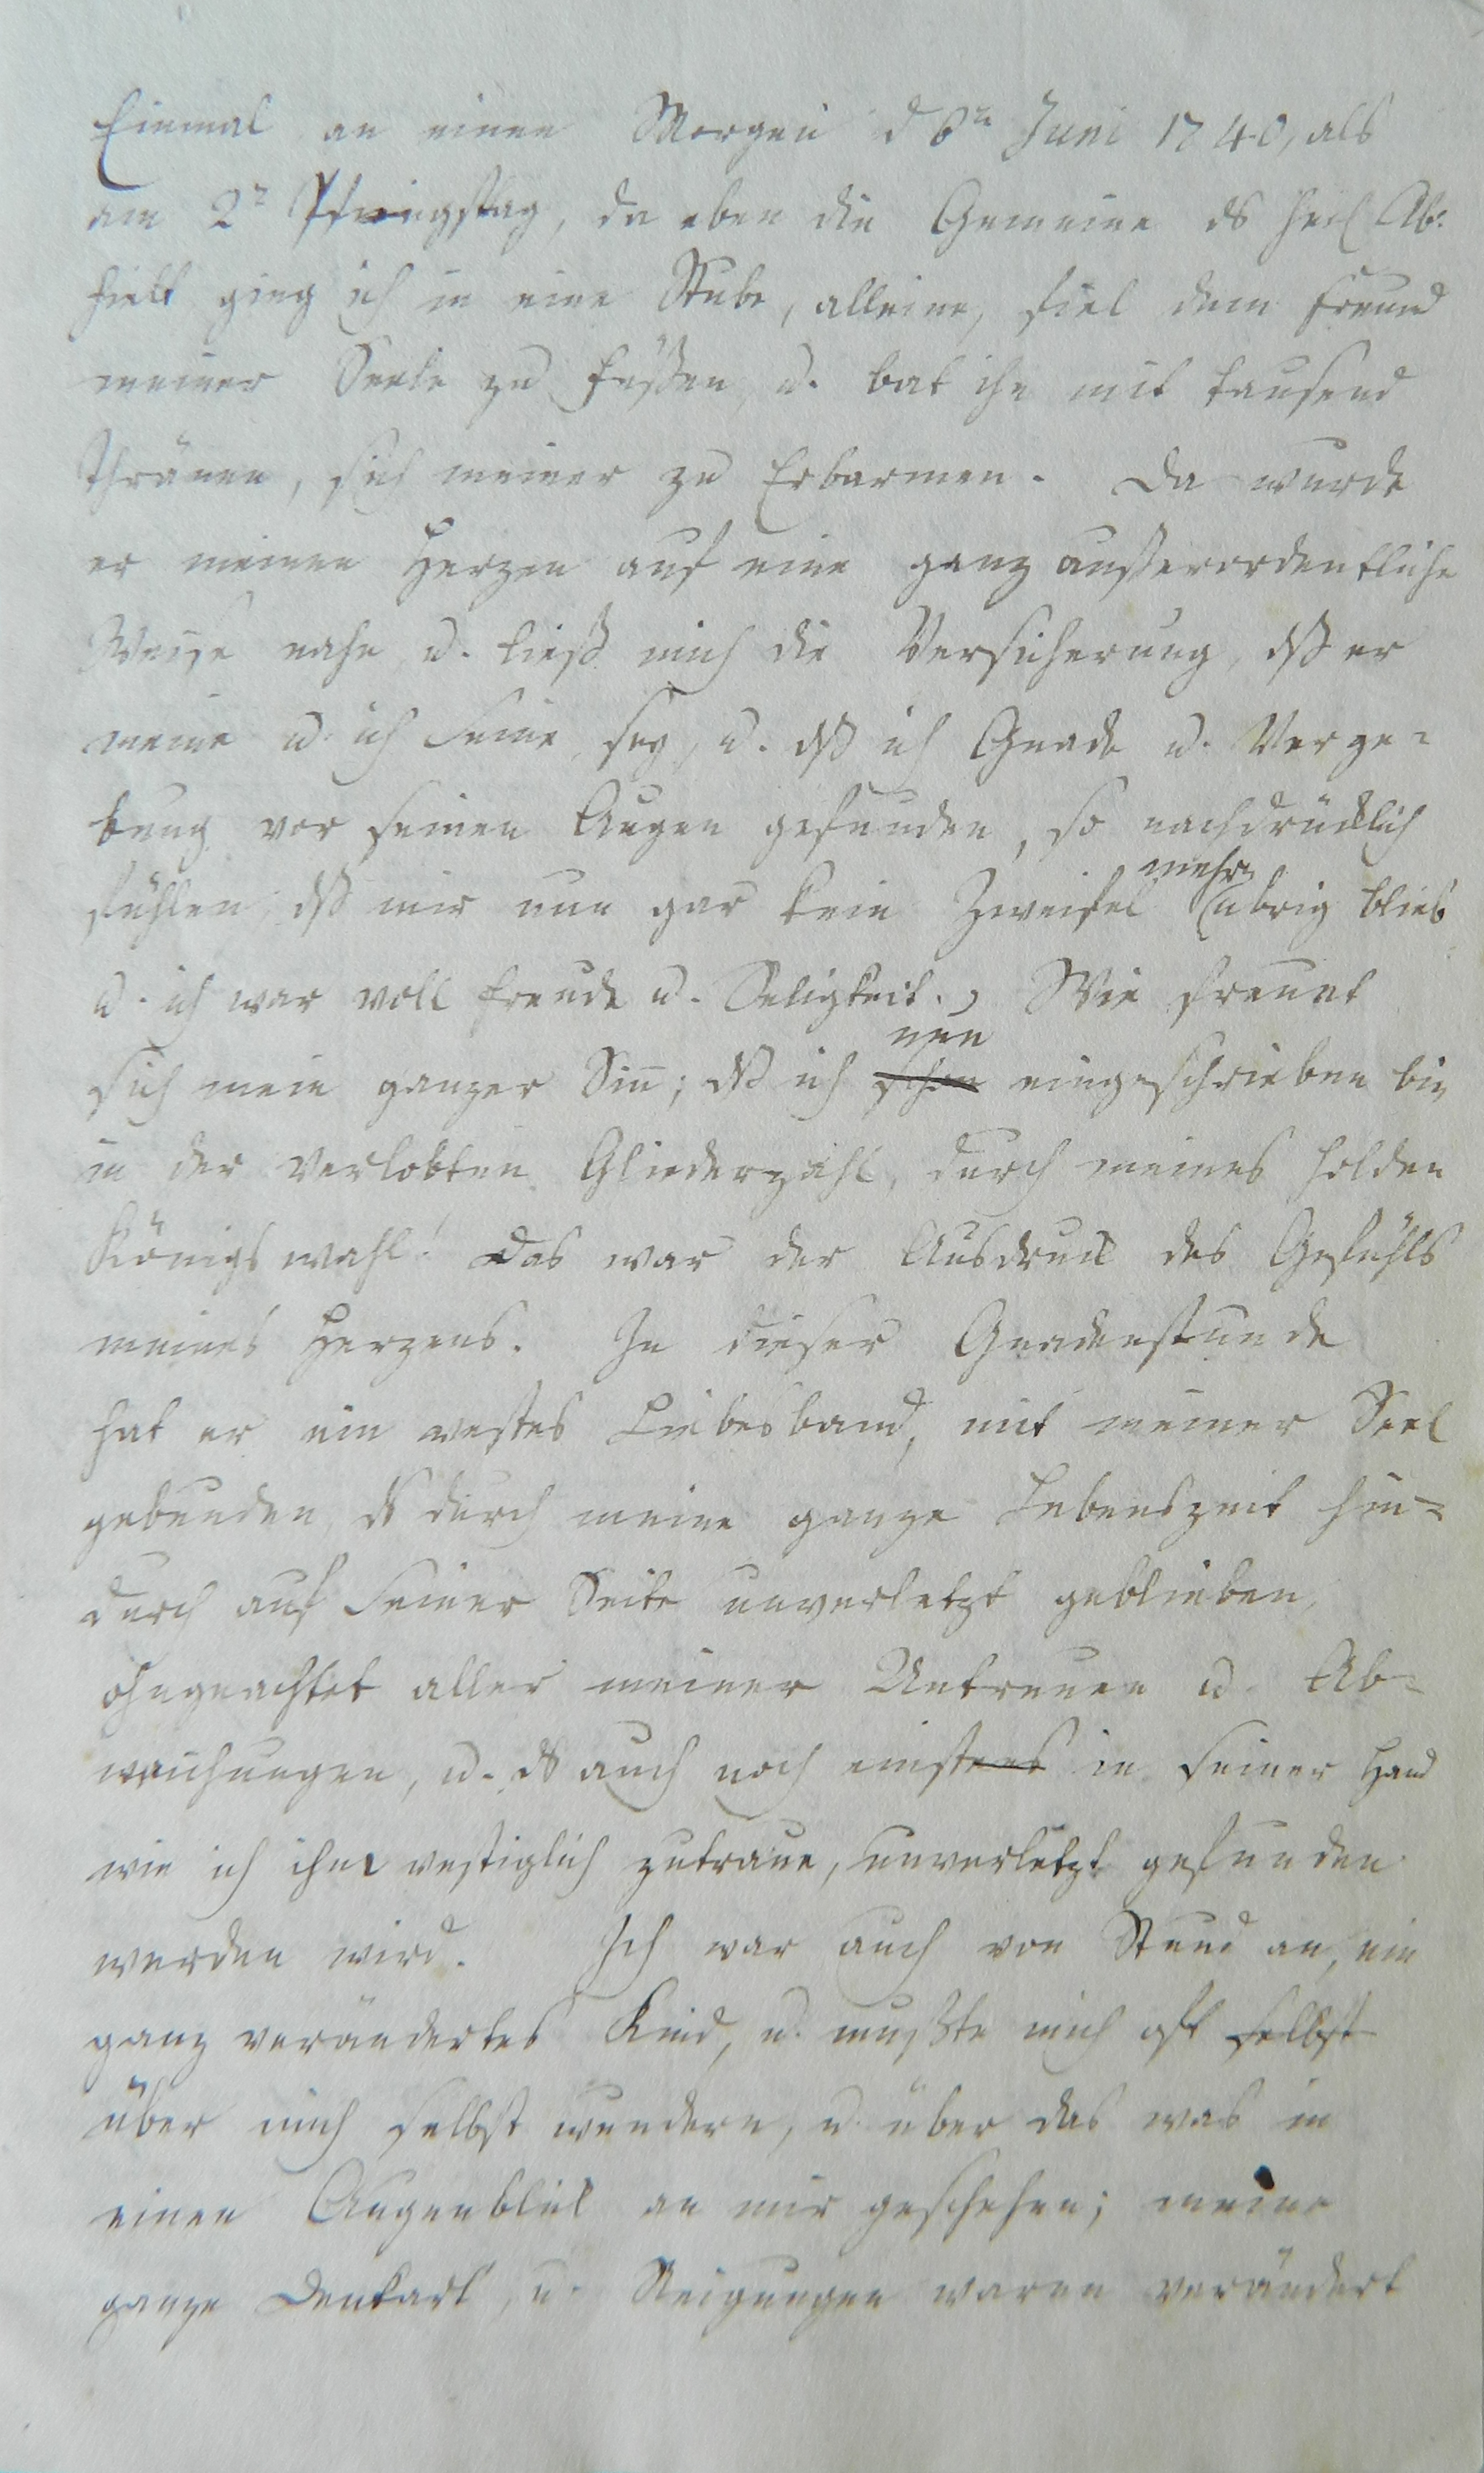 Einmal an einen Morgen d 6n Juni 1740, als
am 2n Pfingstag, da eben die Gemeine ds heil Ab:
hielt ging ich in eine Stube, alleine, fiel dem Freund
meiner Seele zu Füßen, u. bat ihn mit tausend
Thränen, sich meiner zu Erbarmen. Da wurde
er meinen Herzen auf eine ganz außerordentliche
Weise nahe u. ließ mich die Versicherung, dß er
meine u. ich Seine sey, u. dß ich Gnade u. Verge=
bung vor seinen Augen gefunden, so nachdrücklich
fühlen, dß mir nun gar kein Zweifel mehr übrig blieb
u. ich war voll Freude u. Seligkeit., Wie freuet
sich mein ganzer Sin̅; dß ich schon nun eingeschrieben bin
in der Verlobten Gliederzahl, durch meines holden
Königs wahl! Das war der Ausdruck des Gefühls
meines Herzens. In dieser Gnadenstunde
hat er ein vestes Liebesband, mit meiner Seel
gebunden ds durch meine ganze Lebenszeit hin=
durch auf Seiner Seite unverletzt geblieben,
ohngeachtet aller meiner Untreuen u. Ab=
weichungen, u. ds auch noch einstens in Seiner Hand
wie ich ihm vestiglich zutraue, unverletzt gefunden
werden wird. Ich war auch von Stund an, ein
ganz verändertes Kind, u. mußte mich oft selbst
über mich selbst wundern, u. über das was in
einen Augenblick an mir geschehen; meine
ganze Denkart, u. Neigungen waren verändert